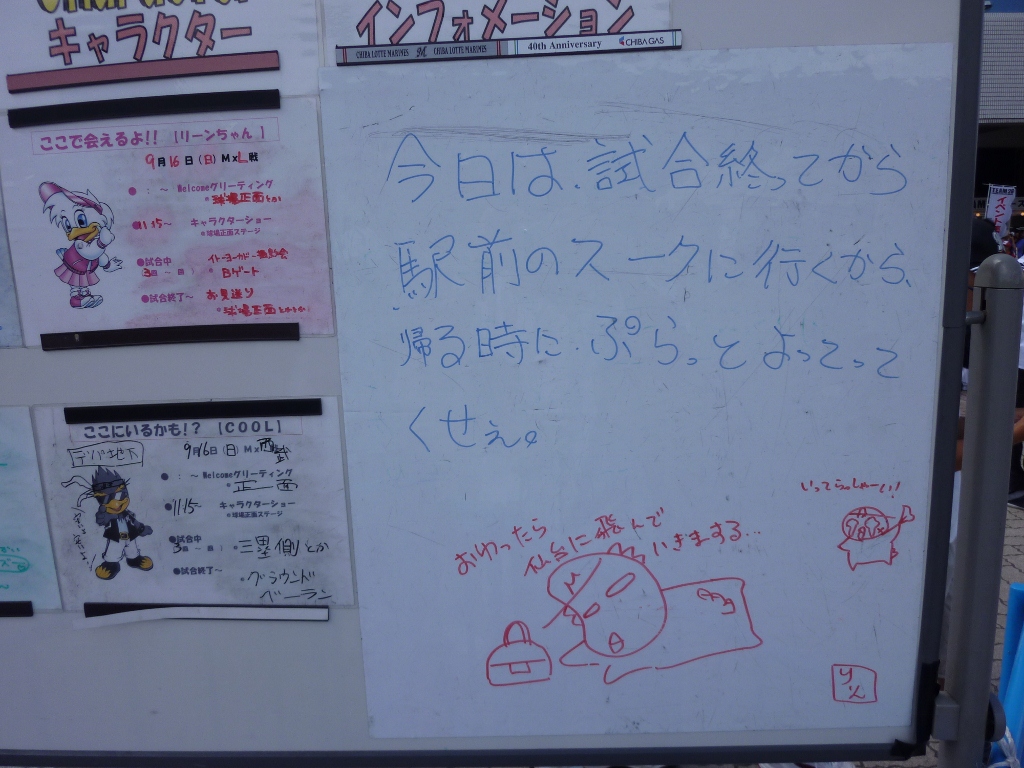 キャラクター
インフォメーション
CHIBA LOTTE MARINES M CHIBA LOTTE MARINES 40th Anniversary CHIBA GAS
ここで会えるよ!! 【リーンちゃん】
9月16日(日) M×L戦
● : ~ Welcomeグリーティング
*球場正面とか
●11:15~ キャラクターショー
*球場正面ステージ
●試合中
3回~ 回:
Bゲート
●試合終了~ お見送り
*球場正面
ここにいるかも!? 【COOL】
9月16日(日) M×西武
● : ~ Welcomeグリーティング
正面
●11:15~ キャラクターショー
*球場正面ステージ
●試合中
3回~ 回: *三塁側とか
●試合終了~
*グラウンド
ベーラン
今日は、試合終ってから
駅前のスークに行くから、
帰る時に ぷらっと よってって
くせぇ。
おわったら
仙台に飛んで
いきまする…
いってらっしゃーい!
M
りん